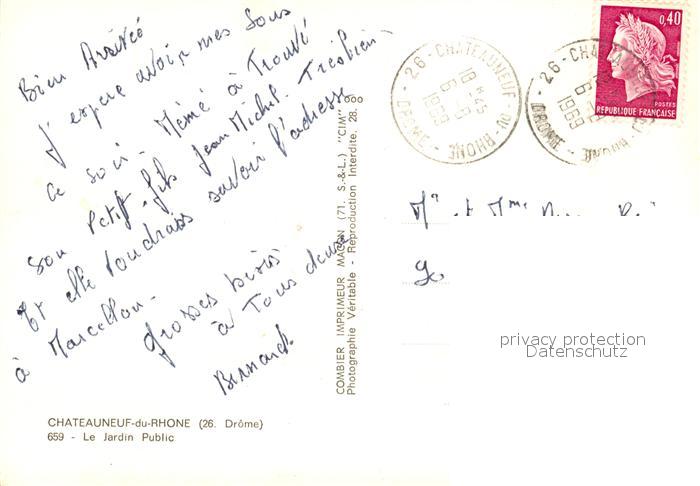 Bien Arrivée
J'espere avoir mes Sous
ce soir. Mémé à Trouvé
son Petit fils Jean Michel. Très bien
Et elle voudrais savoir l'adresse
à Marcellou.
Grosses bises
à Tous deux
Bernard
CHATEAUNEUF-du-RHONE (26. Drôme)
659 - Le Jardin Public
COMBIER IMPRIMEUR MACON (71. S.-&-L.) "CIM"
Photographie Véritable - Reproduction Interdite. 28.
26 - CHATEAUNEUF-DU-RHONE
DROME
18 H 45
1969
26 - CHATEAUNEUF-DU-RHONE
DROME
1969
0,40
POSTES
REPUBLIQUE FRANÇAISE
Mr et Mme
privacy protection
Datenschutz